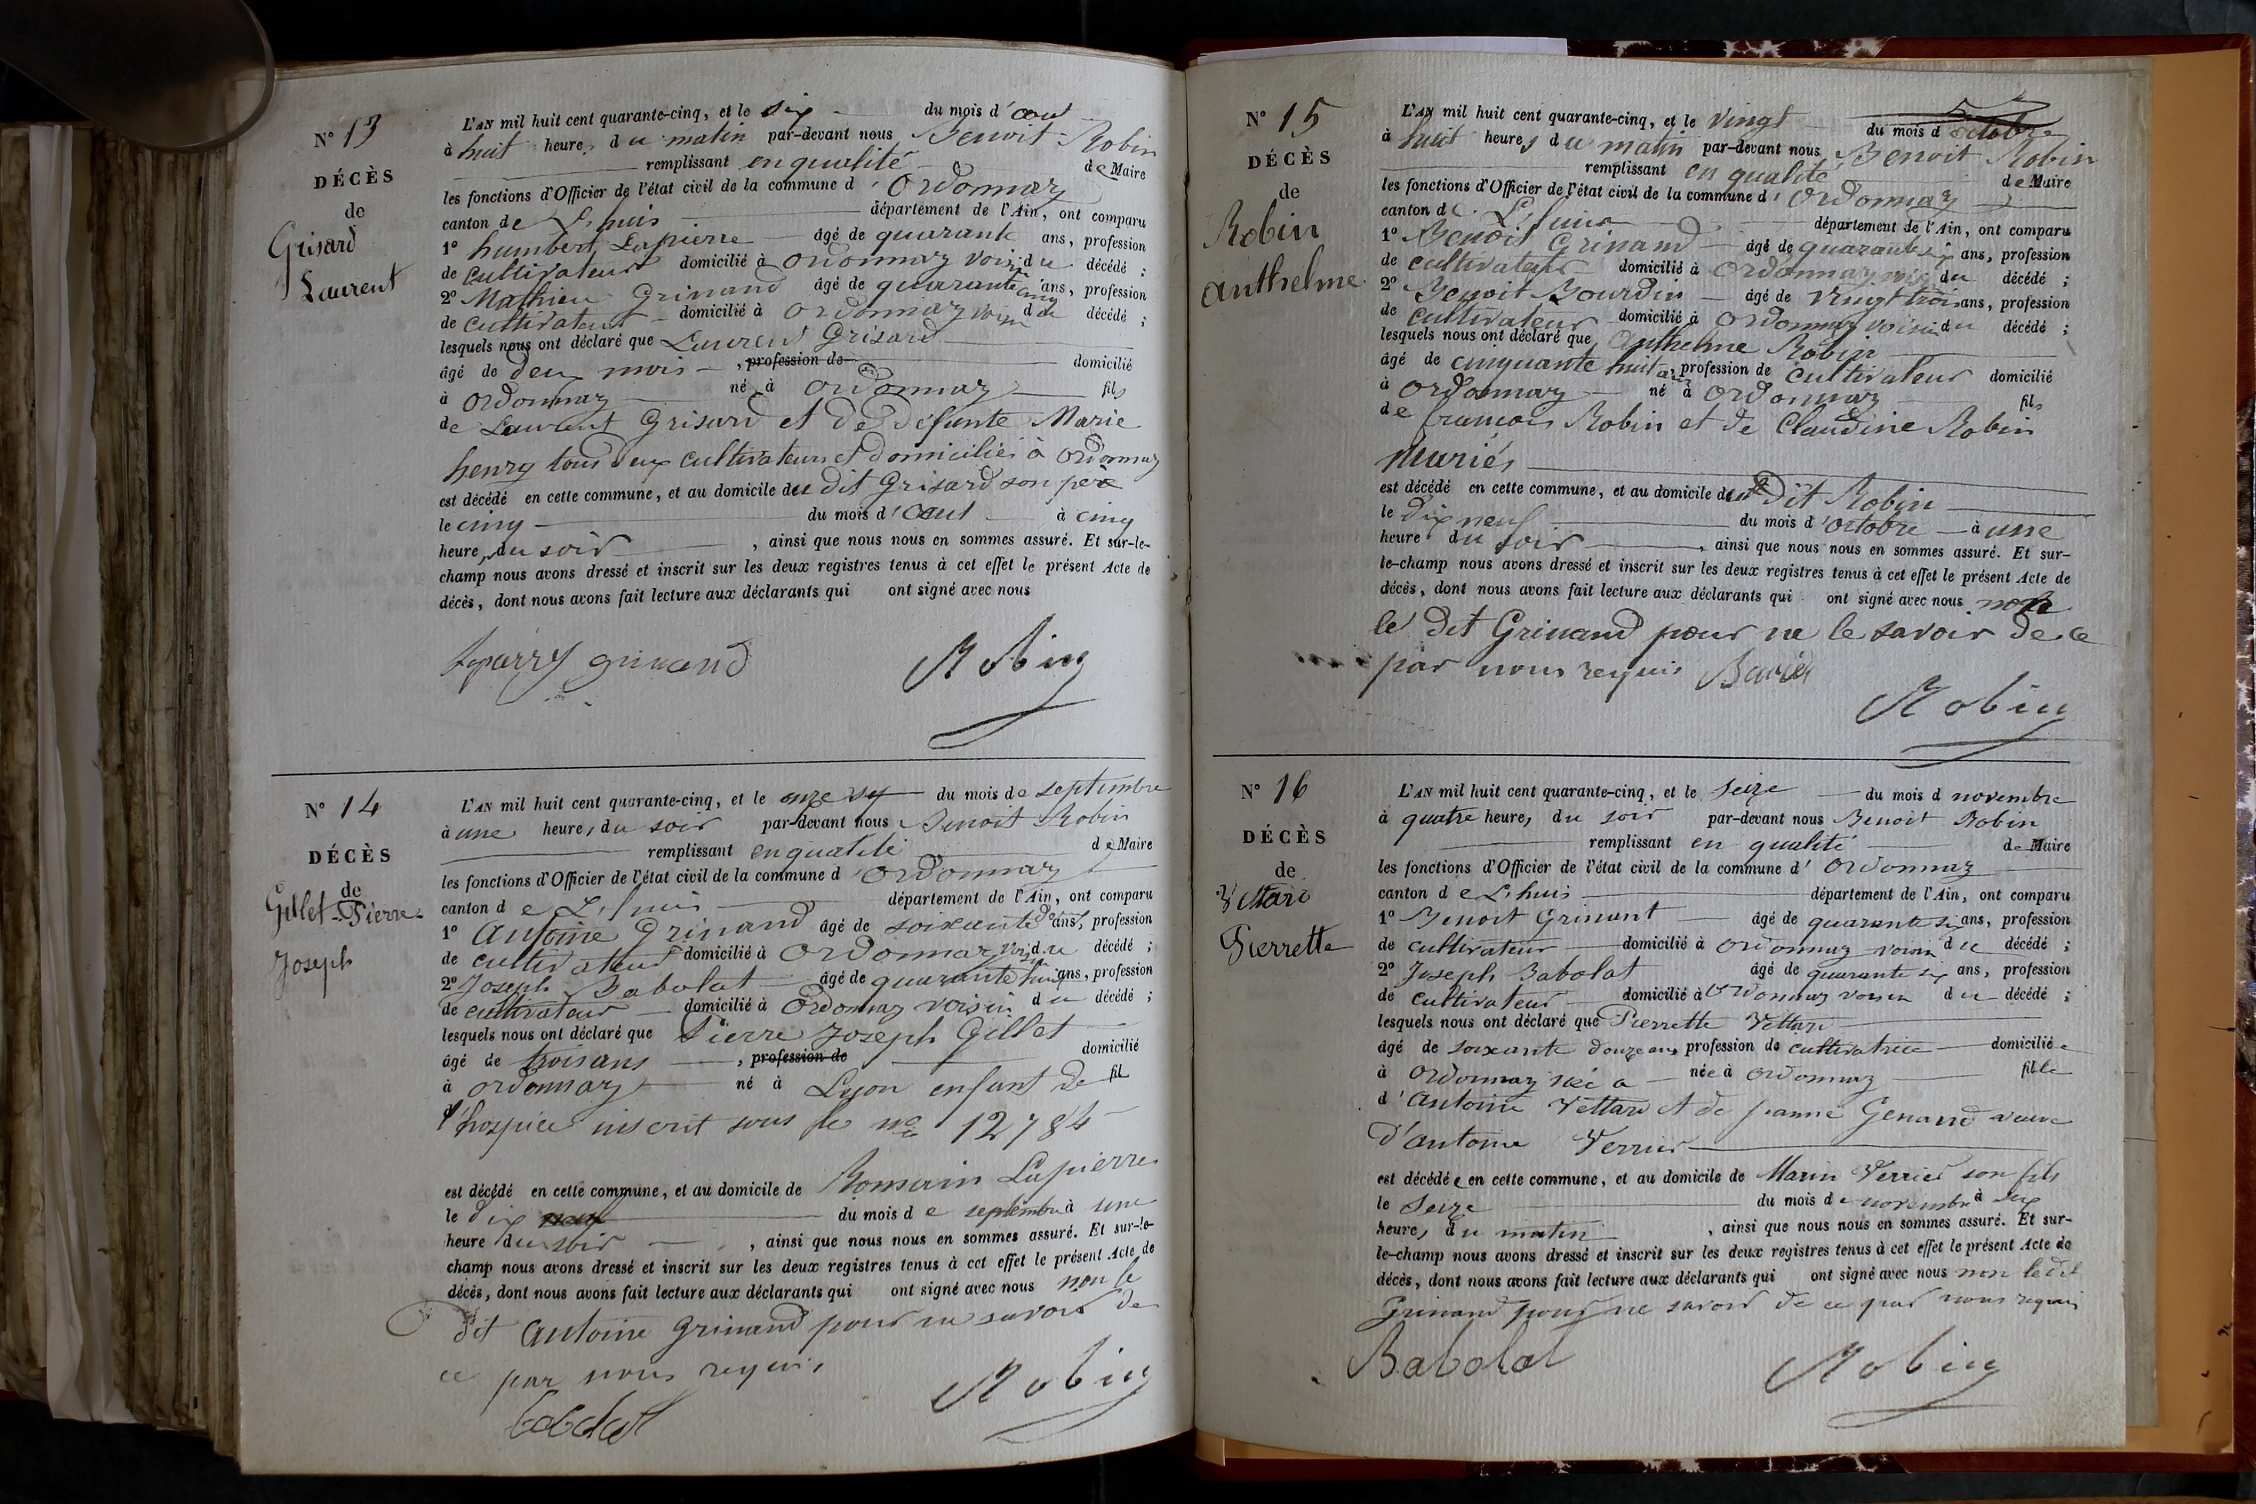 N° 13
DÉCÈS
de
Grisard
Laurent
L'AN mil huit cent quarante-cinq, et le six du mois d'aout
à huit heures du matin par-devant nous Benoit Robin
remplissant en qualité de Maire
les fonctions d'Officier de l'état civil de la commune d'Ordonnaz
canton de L'huis département de l'Ain, ont comparu
1° humbert Lapierre âgé de quarante ans, profession
de cultivateur domicilié à Ordonnaz voisin du décédé ;
2° Mathieu Grinand âgé de quarante cinq ans, profession
de cultivateur domicilié à Ordonnaz voisin du décédé ;
lesquels nous ont déclaré que Laurent Grisard
âgé de deux mois , profession de domicilié
à Ordonnaz né à Ordonnaz fils
de Laurent Grisard et de défunte Marie
henry tous deux cultivateurs et domiciliés à Ordonnaz
est décédé en cette commune, et au domicile du dit Grisard son père
le cinq du mois d'aout à cinq
heures du soir , ainsi que nous nous en sommes assuré. Et sur-le-
champ nous avons dressé et inscrit sur les deux registres tenus à cet effet le présent Acte de
décès, dont nous avons fait lecture aux déclarants qui ont signé avec nous
grinand Robin
N° 14
DÉCÈS
de
Gillet Pierre
Joseph
L'AN mil huit cent quarante-cinq, et le onze du mois de septembre
à une heure du soir par-devant nous Benoit Robin
remplissant en qualité de Maire
les fonctions d'Officier de l'état civil de la commune d'Ordonnaz
canton de L'huis département de l'Ain, ont comparu
1° Antoine Grinand âgé de soixante ans, profession
de cultivateur domicilié à Ordonnaz voisin du décédé ;
2° Joseph Babolat âgé de quarante huit ans, profession
de cultivateur domicilié à Ordonnaz voisin du décédé ;
lesquels nous ont déclaré que Pierre Joseph Gillet
âgé de trois ans , profession de domicilié
à Ordonnaz né à Lyon enfant de fil
l'hospice inscrit sous le no 12784
est décédé en cette commune, et au domicile de Romain Lapierre
le dix du mois de septembre à une
heure du soir , ainsi que nous nous en sommes assuré. Et sur-le-
champ nous avons dressé et inscrit sur les deux registres tenus à cet effet le présent Acte de
décès, dont nous avons fait lecture aux déclarants qui ont signé avec nous non le
dit Antoine Grinand pour ne savoir de
ce par nous requis
babolat Robin
N° 15
DÉCÈS
de
Robin
anthelme
L'AN mil huit cent quarante-cinq, et le vingt du mois d octobre
à huit heures du matin par-devant nous Benoit Robin
remplissant en qualité de Maire
les fonctions d'Officier de l'état civil de la commune d'Ordonnaz
canton de L'huis département de l'Ain, ont comparu
1° Benoit Grinand âgé de quarante six ans, profession
de cultivateur domicilié à Ordonnaz voisin du décédé ;
2° Benoit Bourdin âgé de vingt trois ans, profession
de cultivateur domicilié à Ordonnaz voisin du décédé ;
lesquels nous ont déclaré que Anthelme Robin
âgé de cinquante huit ans profession de cultivateur domicilié
à Ordonnaz né à Ordonnaz fils
de francois Robin et de Claudine Robin
mariés
est décédé en cette commune, et au domicile du dit Robin
le dix neuf du mois d'octobre à une
heure du soir , ainsi que nous nous en sommes assuré. Et sur-
le-champ nous avons dressé et inscrit sur les deux registres tenus à cet effet le présent Acte de
décès, dont nous avons fait lecture aux déclarants qui ont signé avec nous non
le dit Grinand pour ne le savoir de ce
par nous requis
Robin
N° 16
DÉCÈS
de
Vettard
Pierrette
L'AN mil huit cent quarante-cinq, et le seize du mois d novembre
à quatre heures du soir par-devant nous Benoit Robin
remplissant en qualité de Maire
les fonctions d'Officier de l'état civil de la commune d'Ordonnaz
canton de L'huis département de l'Ain, ont comparu
1° Benoit Grinant âgé de quarante six ans, profession
de cultivateur domicilié à Ordonnaz voisin du décédé ;
2° Joseph Babolat âgé de quarante six ans, profession
de cultivateur domicilié à Ordonnaz voisin du décédé ;
lesquels nous ont déclaré que Pierrette Vettard
âgé de soixante douze ans profession de cultivatrice domiciliée
à Ordonnaz née à née à Ordonnaz fille
d'Antoine Vettard et de Jeanne Genand veuve
d'antoine Verrier
est décédée en cette commune, et au domicile de Marin Verrier son fils
le seize du mois de novembre à six
heures du matin , ainsi que nous nous en sommes assuré. Et sur-
le-champ nous avons dressé et inscrit sur les deux registres tenus à cet effet le présent Acte de
décès, dont nous avons fait lecture aux déclarants qui ont signé avec nous non le dit
Grinand pour ne savoir de ce par nous requis
Babolat Robin